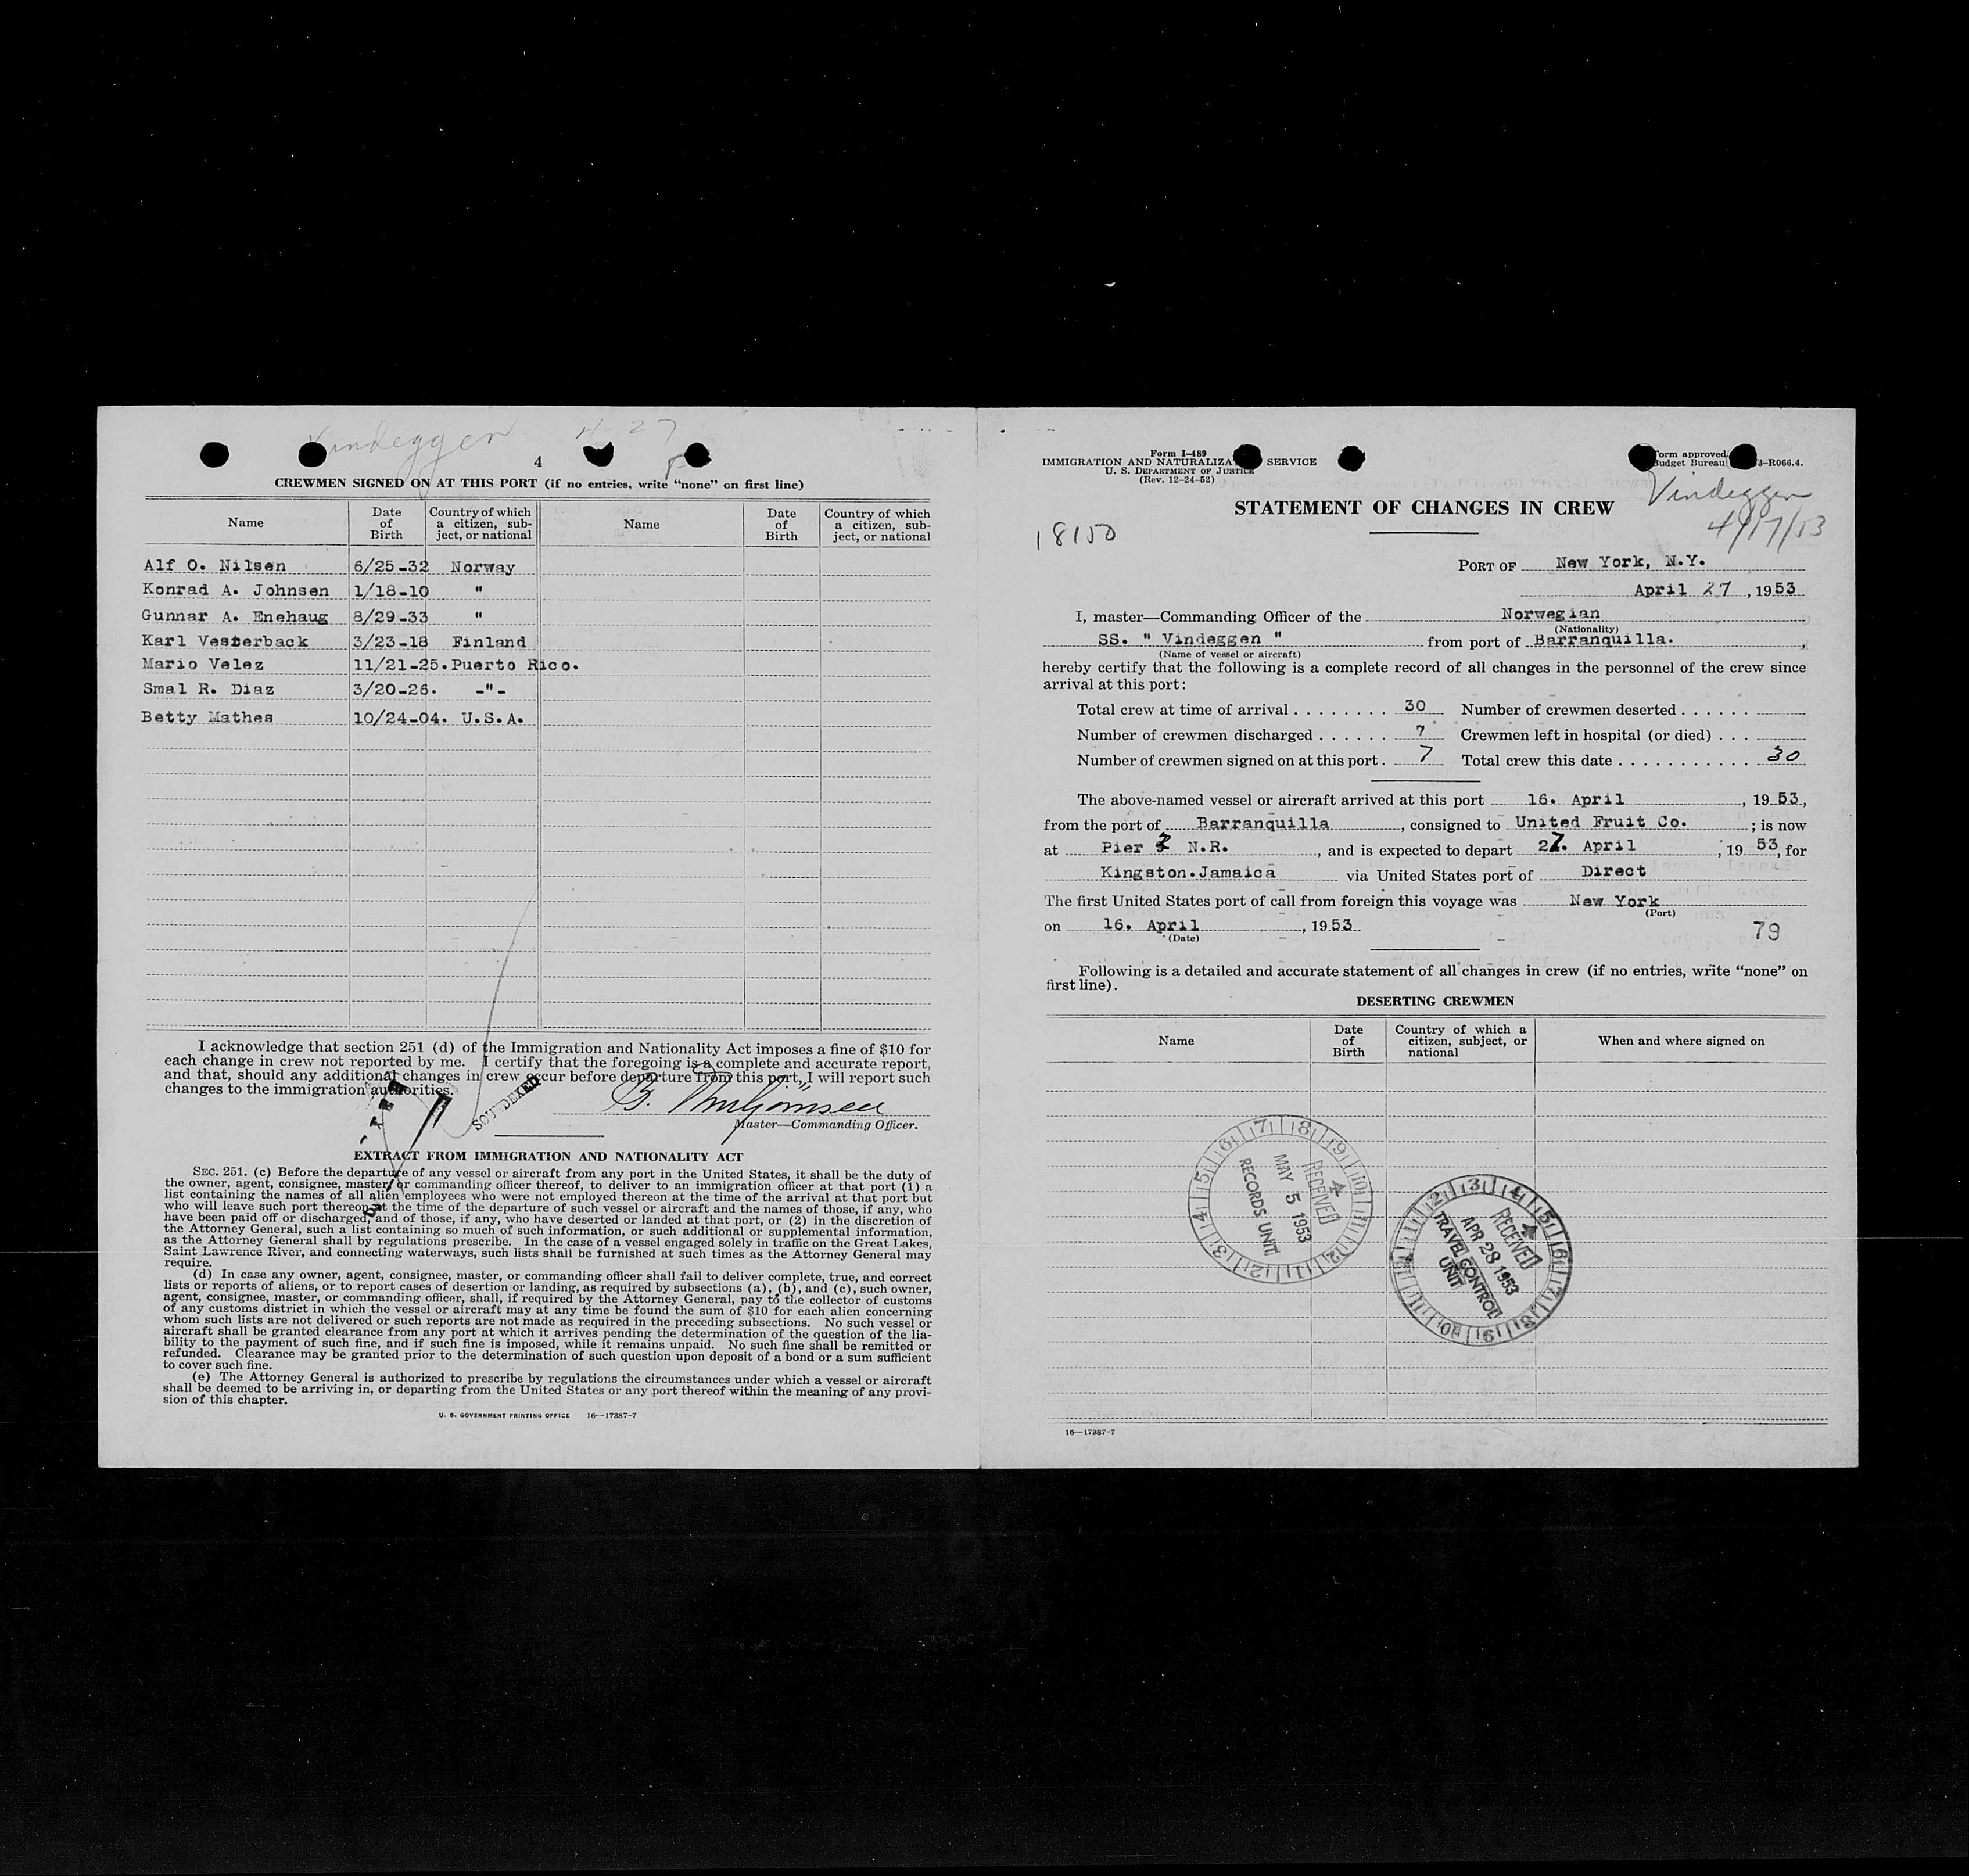 Vindeggen 4/27
4
CREWMEN SIGNED ON AT THIS PORT (if no entries, write “none” on first line)
Name Date of Birth Country of which a citizen, subject, or national Name Date of Birth Country of which a citizen, subject, or national
Alf O. Nilsen 6/25-32 Norway
Konrad A. Johnsen 1/18-10 "
Gunnar A. Enehaug 8/29-33 "
Karl Vesterback 3/23-18 Finland
Mario Velez 11/21-25. Puerto Rico.
Smal R. Diaz 3/20-26. -"-
Betty Mathes 10/24-04. U.S.A.
I acknowledge that section 251 (d) of the Immigration and Nationality Act imposes a fine of $10 for
each change in crew not reported by me. I certify that the foregoing is a complete and accurate report,
and that, should any additional changes in crew occur before departure from this port, I will report such
changes to the immigration authorities.
SOUNDEXED
Master—Commanding Officer.
EXTRACT FROM IMMIGRATION AND NATIONALITY ACT
SEC. 251. (c) Before the departure of any vessel or aircraft from any port in the United States, it shall be the duty of
the owner, agent, consignee, master, or commanding officer thereof, to deliver to an immigration officer at that port (1) a
list containing the names of all alien employees who were not employed thereon at the time of the arrival at that port but
who will leave such port thereon at the time of the departure of such vessel or aircraft and the names of those, if any, who
have been paid off or discharged, and of those, if any, who have deserted or landed at that port, or (2) in the discretion of
the Attorney General, such a list containing so much of such information, or such additional or supplemental information,
as the Attorney General shall by regulations prescribe. In the case of a vessel engaged solely in traffic on the Great Lakes,
Saint Lawrence River, and connecting waterways, such lists shall be furnished at such times as the Attorney General may
require.
(d) In case any owner, agent, consignee, master, or commanding officer shall fail to deliver complete, true, and correct
lists or reports of aliens, or to report cases of desertion or landing, as required by subsections (a), (b), and (c), such owner,
agent, consignee, master, or commanding officer, shall, if required by the Attorney General, pay to the collector of customs
of any customs district in which the vessel or aircraft may at any time be found the sum of $10 for each alien concerning
whom such lists are not delivered or such reports are not made as required in the preceding subsections. No such vessel or
aircraft shall be granted clearance from any port at which it arrives pending the determination of the question of the lia-
bility to the payment of such fine, and if such fine is imposed, while it remains unpaid. No such fine shall be remitted or
refunded. Clearance may be granted prior to the determination of such question upon deposit of a bond or a sum sufficient
to cover such fine.
(e) The Attorney General is authorized to prescribe by regulations the circumstances under which a vessel or aircraft
shall be deemed to be arriving in, or departing from the United States or any port thereof within the meaning of any provi-
sion of this chapter.
U. S. GOVERNMENT PRINTING OFFICE 16—17387-7
Form I-489
IMMIGRATION AND NATURALIZA SERVICE
U. S. DEPARTMENT OF JUSTICE
(Rev. 12-24-52)
Form approved.
Budget Bureau 3-R066.4.
Vindeggen
4/17/53
STATEMENT OF CHANGES IN CREW
18150
PORT OF New York, N.Y.
April 27, 1953
I, master—Commanding Officer of the Norwegian
(Nationality)
SS. " Vindeggen " from port of Barranquilla.,
(Name of vessel or aircraft)
hereby certify that the following is a complete record of all changes in the personnel of the crew since
arrival at this port:
Total crew at time of arrival . . . . . . . . 30 Number of crewmen deserted . . . . . .
Number of crewmen discharged . . . . . . 7 Crewmen left in hospital (or died) . . .
Number of crewmen signed on at this port . 7 Total crew this date . . . . . . . . . . . 30
The above-named vessel or aircraft arrived at this port 16. April, 1953,
from the port of Barranquilla, consigned to United Fruit Co. ; is now
at Pier 7 N.R., and is expected to depart 27. April, 1953, for
Kingston.Jamaica via United States port of Direct
The first United States port of call from foreign this voyage was New York
(Port)
on 16. April, 1953.
(Date)
79
Following is a detailed and accurate statement of all changes in crew (if no entries, write “none” on
first line).
DESERTING CREWMEN
Name Date of Birth Country of which a citizen, subject, or national When and where signed on
RECEIVED
MAY 5 1953
RECORDS UNIT
RECEIVED
APR 28 1953
TRAVEL CONTROL
UNIT
16—17387-7